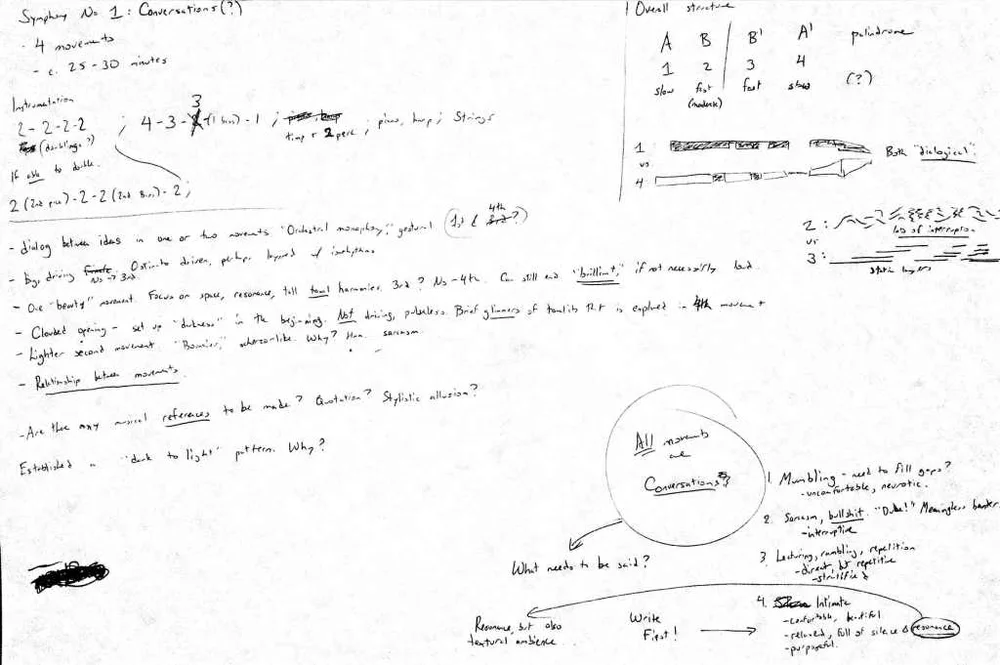 Symphony No 1: Conversations(?)
- 4 movements
- c. 25-30 minutes
Instrumentation
2-2-2-2
(doublings?)
If able to double.
; 4-3-3-1 ; timp + 2 perc ; piano, harp ; Strings
2 (2nd picc) -2-2 (2nd Bass) -2;
- dialog between ideas in one or two movements "Orchestral monophony," gestural (1st & 4th?)
- Big, driving Ostinato driven, perhaps layered w/ isorhythms.
No → 3rd.
- One "beauty" movement. Focus on space, resonance, tall tonal harmonies. 3rd? No - 4th. Can still end "brilliant," if not necessarily loud.
- Clouded opening - set up "darkness" in the beginning. Not driving, pulseless. Brief glimmers of tonality that is explored in 4th movement
- Lighter second movement. scherzo-like. Why? Hmm. sarcasm.
- Relationship between movements.
- Are there any musical references to be made? Quotation? Stylistic allusion?
Established a "dark to light" pattern. Why?
Overall structure
A B B' A' palindrome
1 2 3 4 (?)
slow fast fast slow
(moderate)
1:
vs
4:
Both "dialogical".
2:
lots of interruption
vs
3:
static layers
All movements
are
Conversations?
What needs to be said?
1. Mumbling - need to fill gaps?
- uncomfortable, neurotic.
2. Sarcasm, bullshit. Meaningless banter.
- interruptive
3. Lecturing, rambling, repetition
- direct, but repetitive
- stratified
4. Intimate
- comfortable, beautiful.
- relaxed, full of silence & resonance
- purposeful.
Resonance, but also
textural ambience.
Write
First!